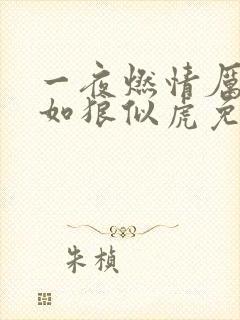 一夜燃情厲
如狼似虎免
朱楨